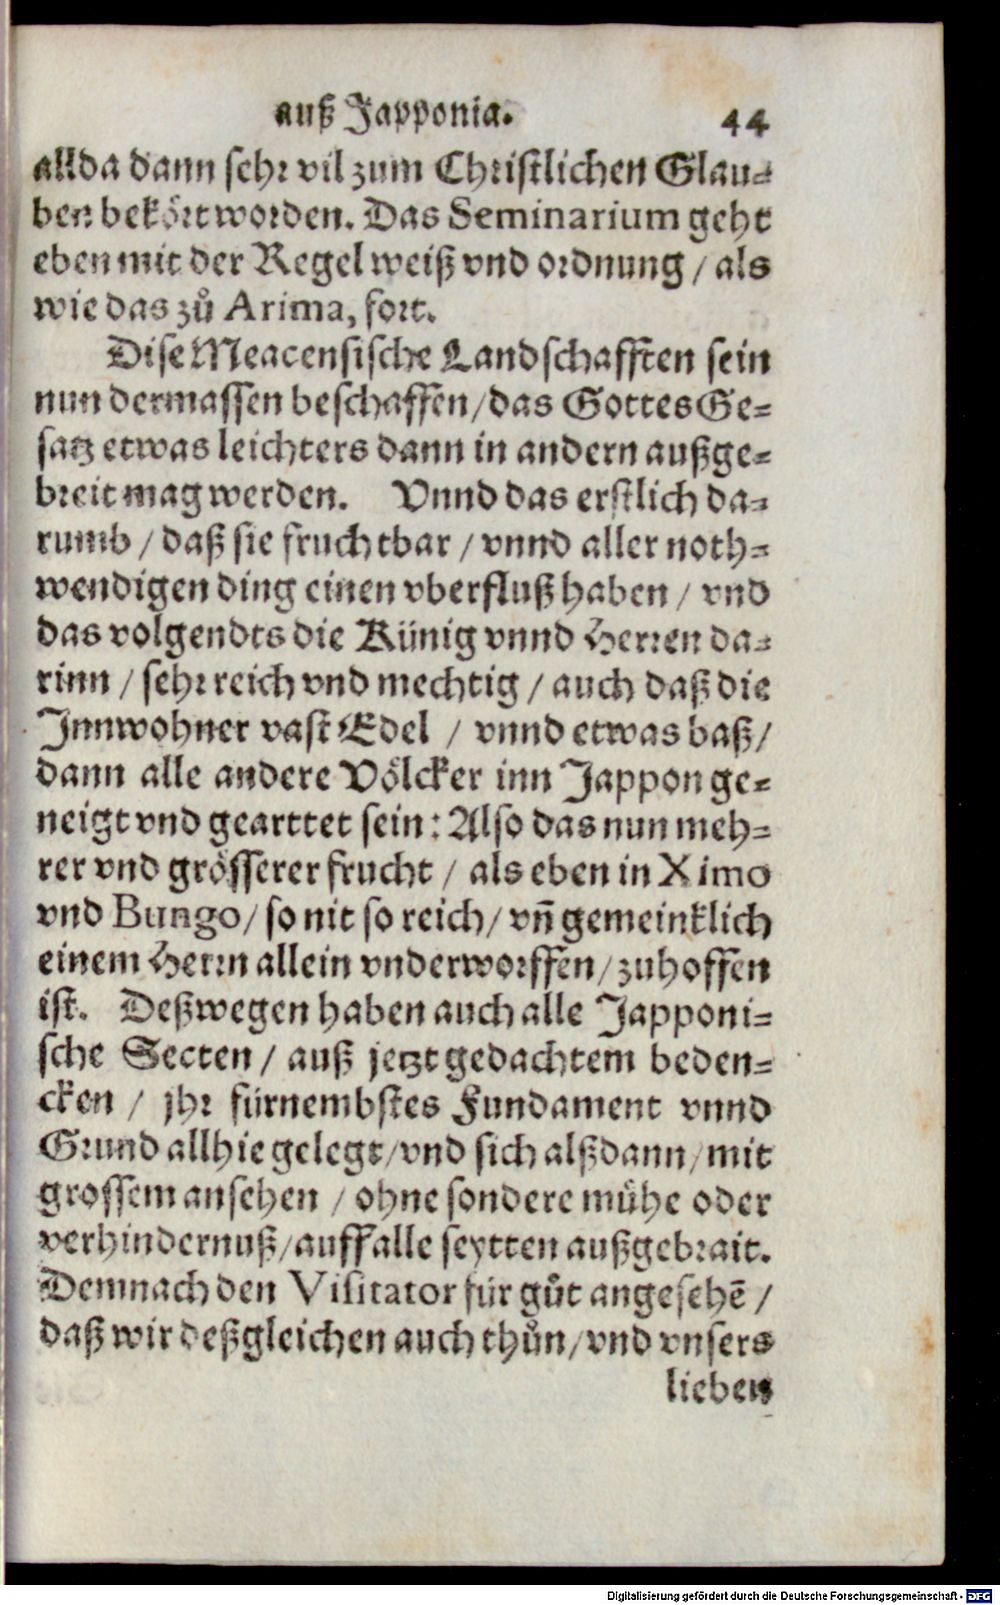 auß Japponia. 44
allda dann sehr vil zum Christlichen Glau-
ben bekört worden. Das Seminarium geht
eben mit der Regel weiß vnd ordnung / als
wie das zů Arima, fort.
Dise Meacensische Landschafften sein
nun dermassen beschaffen / das Gottes Ge-
satz etwas leichters dann in andern außge-
breit mag werden. Vnnd das erstlich da-
rumb / daß sie fruchtbar / vnnd aller noth-
wendigen ding einen vberfluß haben / vnd
das volgendts die Künig vnnd Herren da-
rinn / sehr reich vnd mechtig / auch daß die
Innwohner vast Edel / vnnd etwas baß /
dann alle andere Völcker inn Jappon ge-
neigt vnd gearttet sein: Also das nun meh-
rer vnd grösserer frucht / als eben in Ximo
vnd Bungo / so nit so reich / vñ gemeinklich
einem Herrn allein vnderworffen / zuhoffen
ist. Deßwegen haben auch alle Japponi-
sche Secten / auß jetzt gedachtem beden-
cken / jhr fürnembstes Fundament vnnd
Grund allhie gelegt / vnd sich alßdann / mit
grossem ansehen / ohne sondere mühe oder
verhindernuß / auff alle seytten außgebrait.
Demnach den Visitator für gůt angesehẽ /
daß wir deßgleichen auch thůn / vnd vnsers
lieben
Digitalisierung gefördert durch die Deutsche Forschungsgemeinschaft - DFG